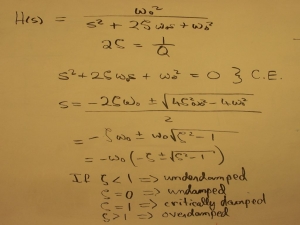 H(s) = ω₀² / (s² + 2ζω₀s + ω₀²)
2ζ = 1/Q
s² + 2ζω₀s + ω₀² = 0 } C.E.
s = (-2ζω₀ ± √(4ζ²ω₀² - 4ω₀²)) / 2
= -ζω₀ ± ω₀√(ζ² - 1)
= -ω₀(-ζ ± √(ζ² - 1))
If ζ < 1 => underdamped
ζ = 0 => undamped
ζ = 1 => critically damped
ζ > 1 => overdamped